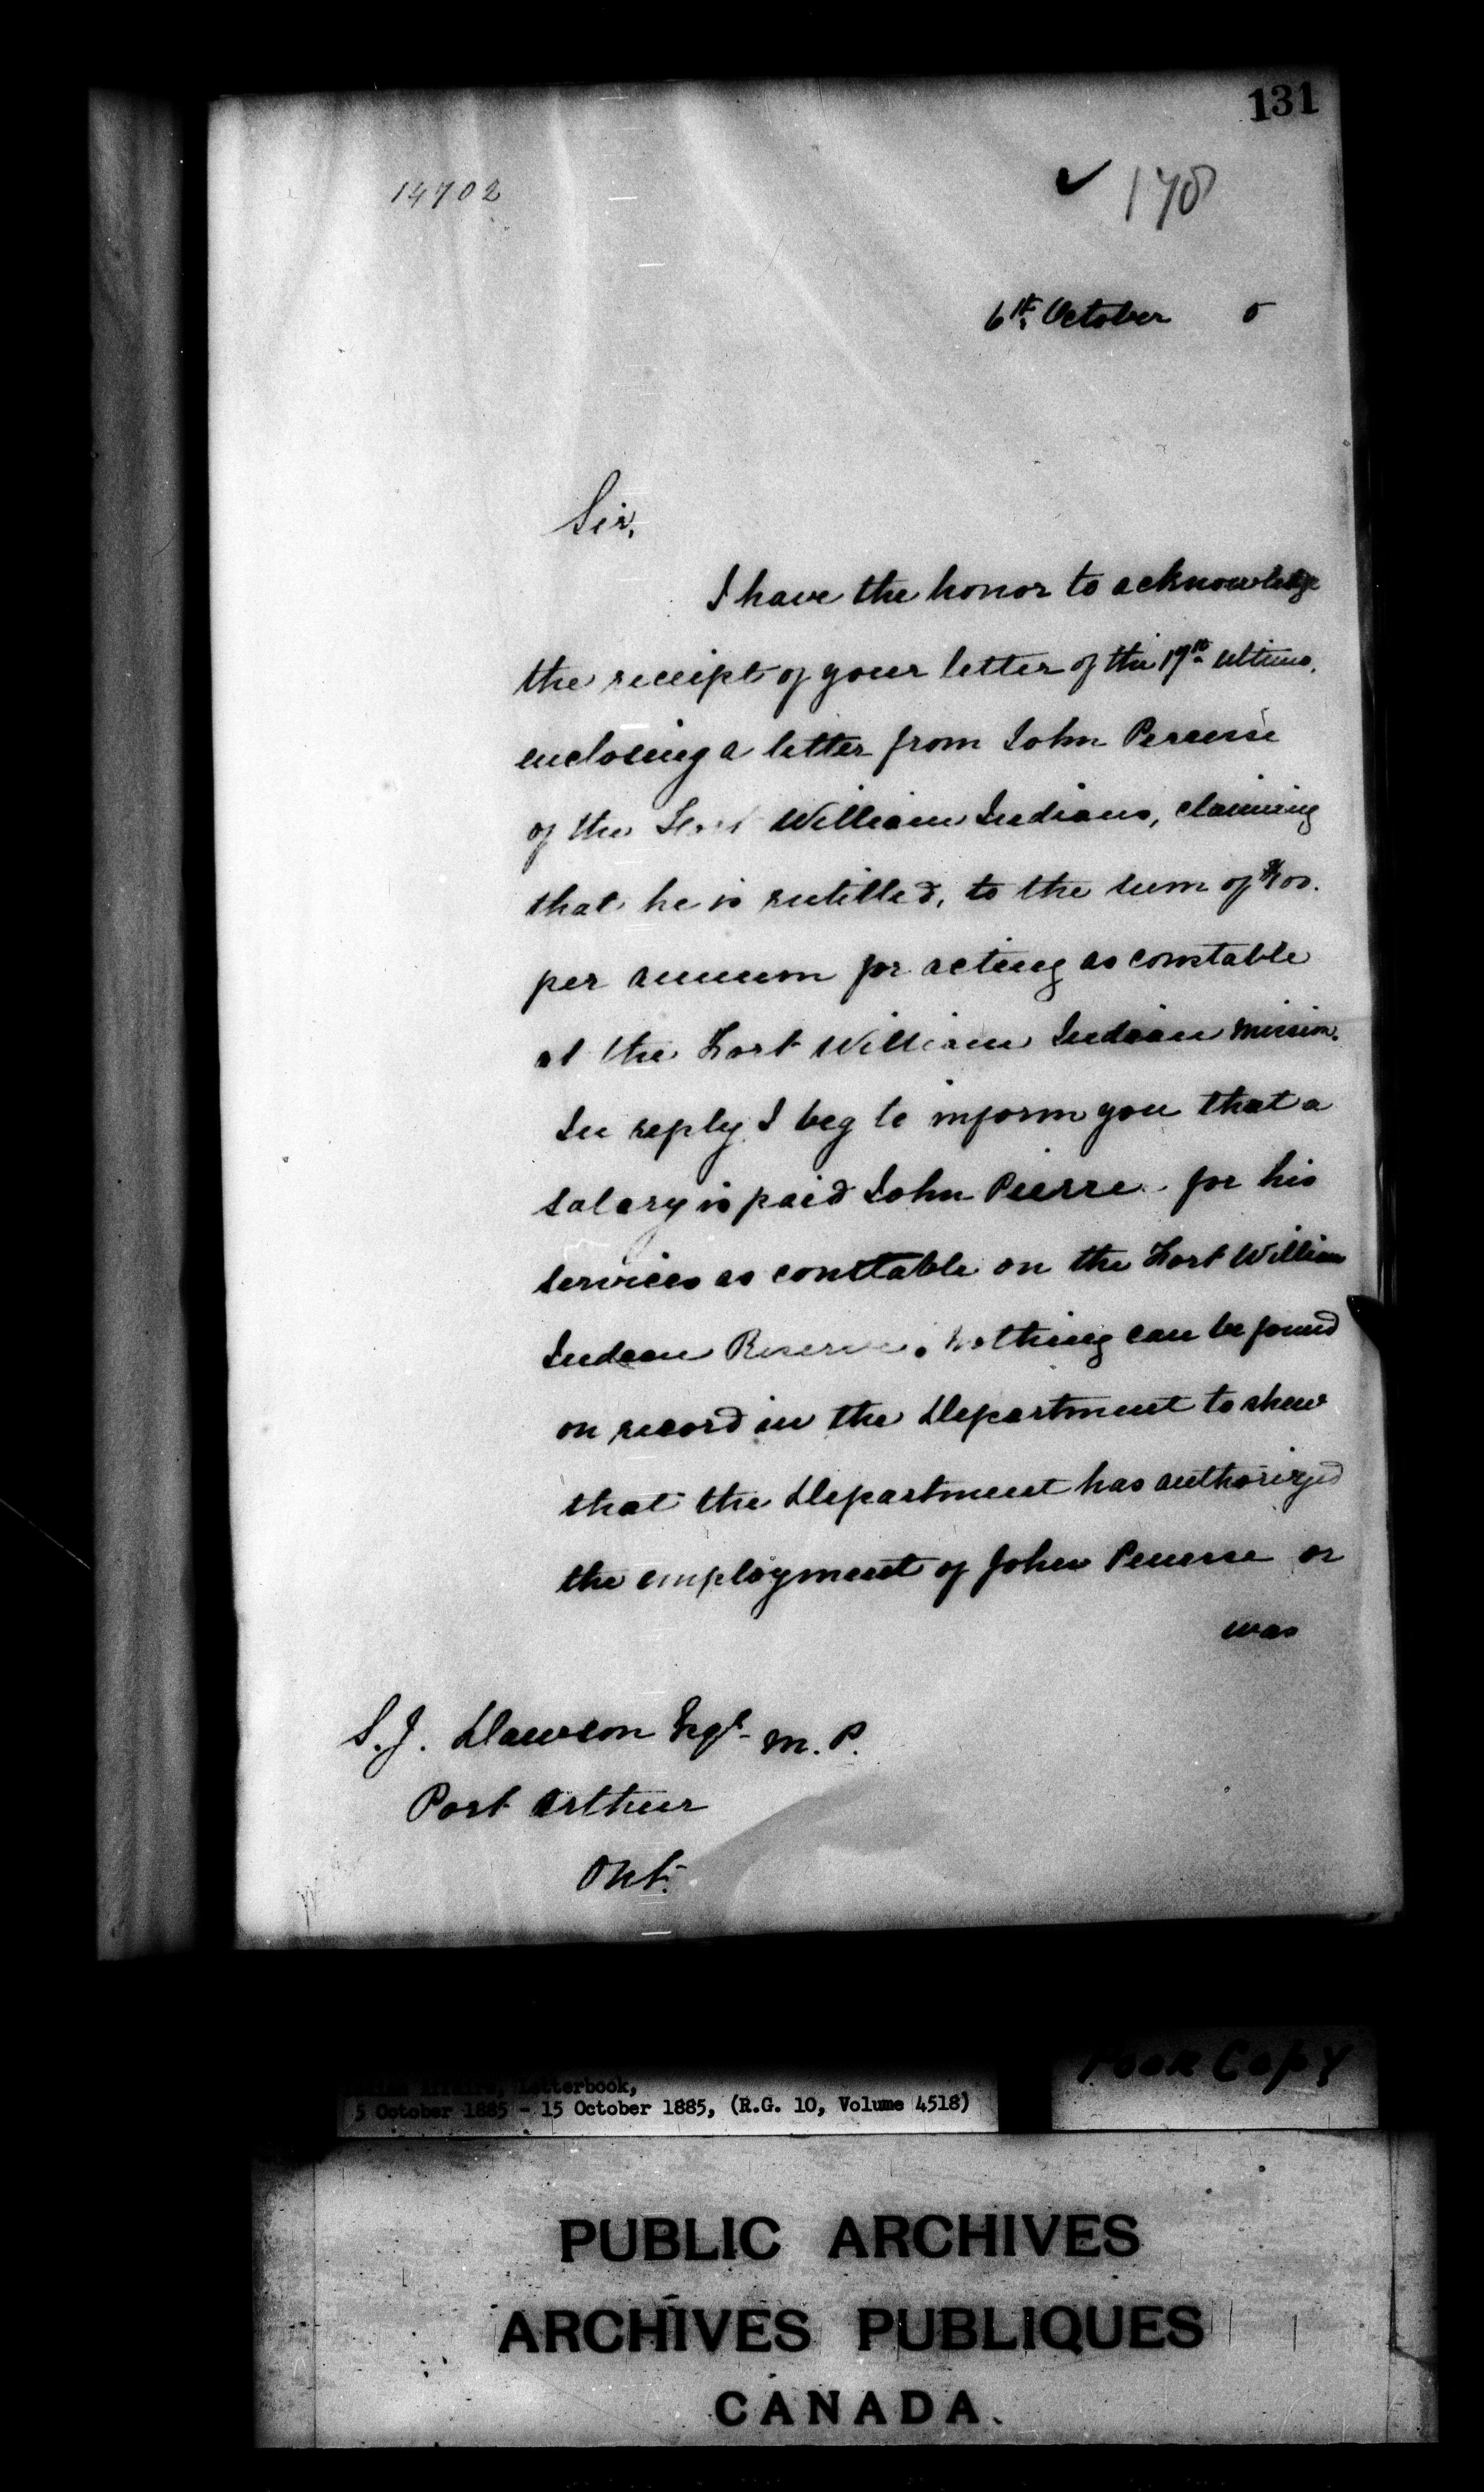 131
14702
✓ 178
6th October 5
Sir,
I have the honor to acknowledge
the receipt of your letter of the 17th ultimo,
enclosing a letter from John
of the Fort William Indians, claiming
that he is entitled, to the sum of $100.
per annum for acting as constable
at the Fort William Indian Mission.
In reply I beg to inform you that a
salary is paid John Pierre for his
services as constable on the Fort William
Indian Reserve. Nothing can be found
on record in the Department to shew
that the Department has authorized
the employment of John or
was
S. J. Dawson Esqr. M. P.
Port Arthur
Ont.
Affairs, Letterbook,
5 October 1885 - 15 October 1885, (R.G. 10, Volume 4518)
Poor Copy
PUBLIC ARCHIVES
ARCHIVES PUBLIQUES
CANADA